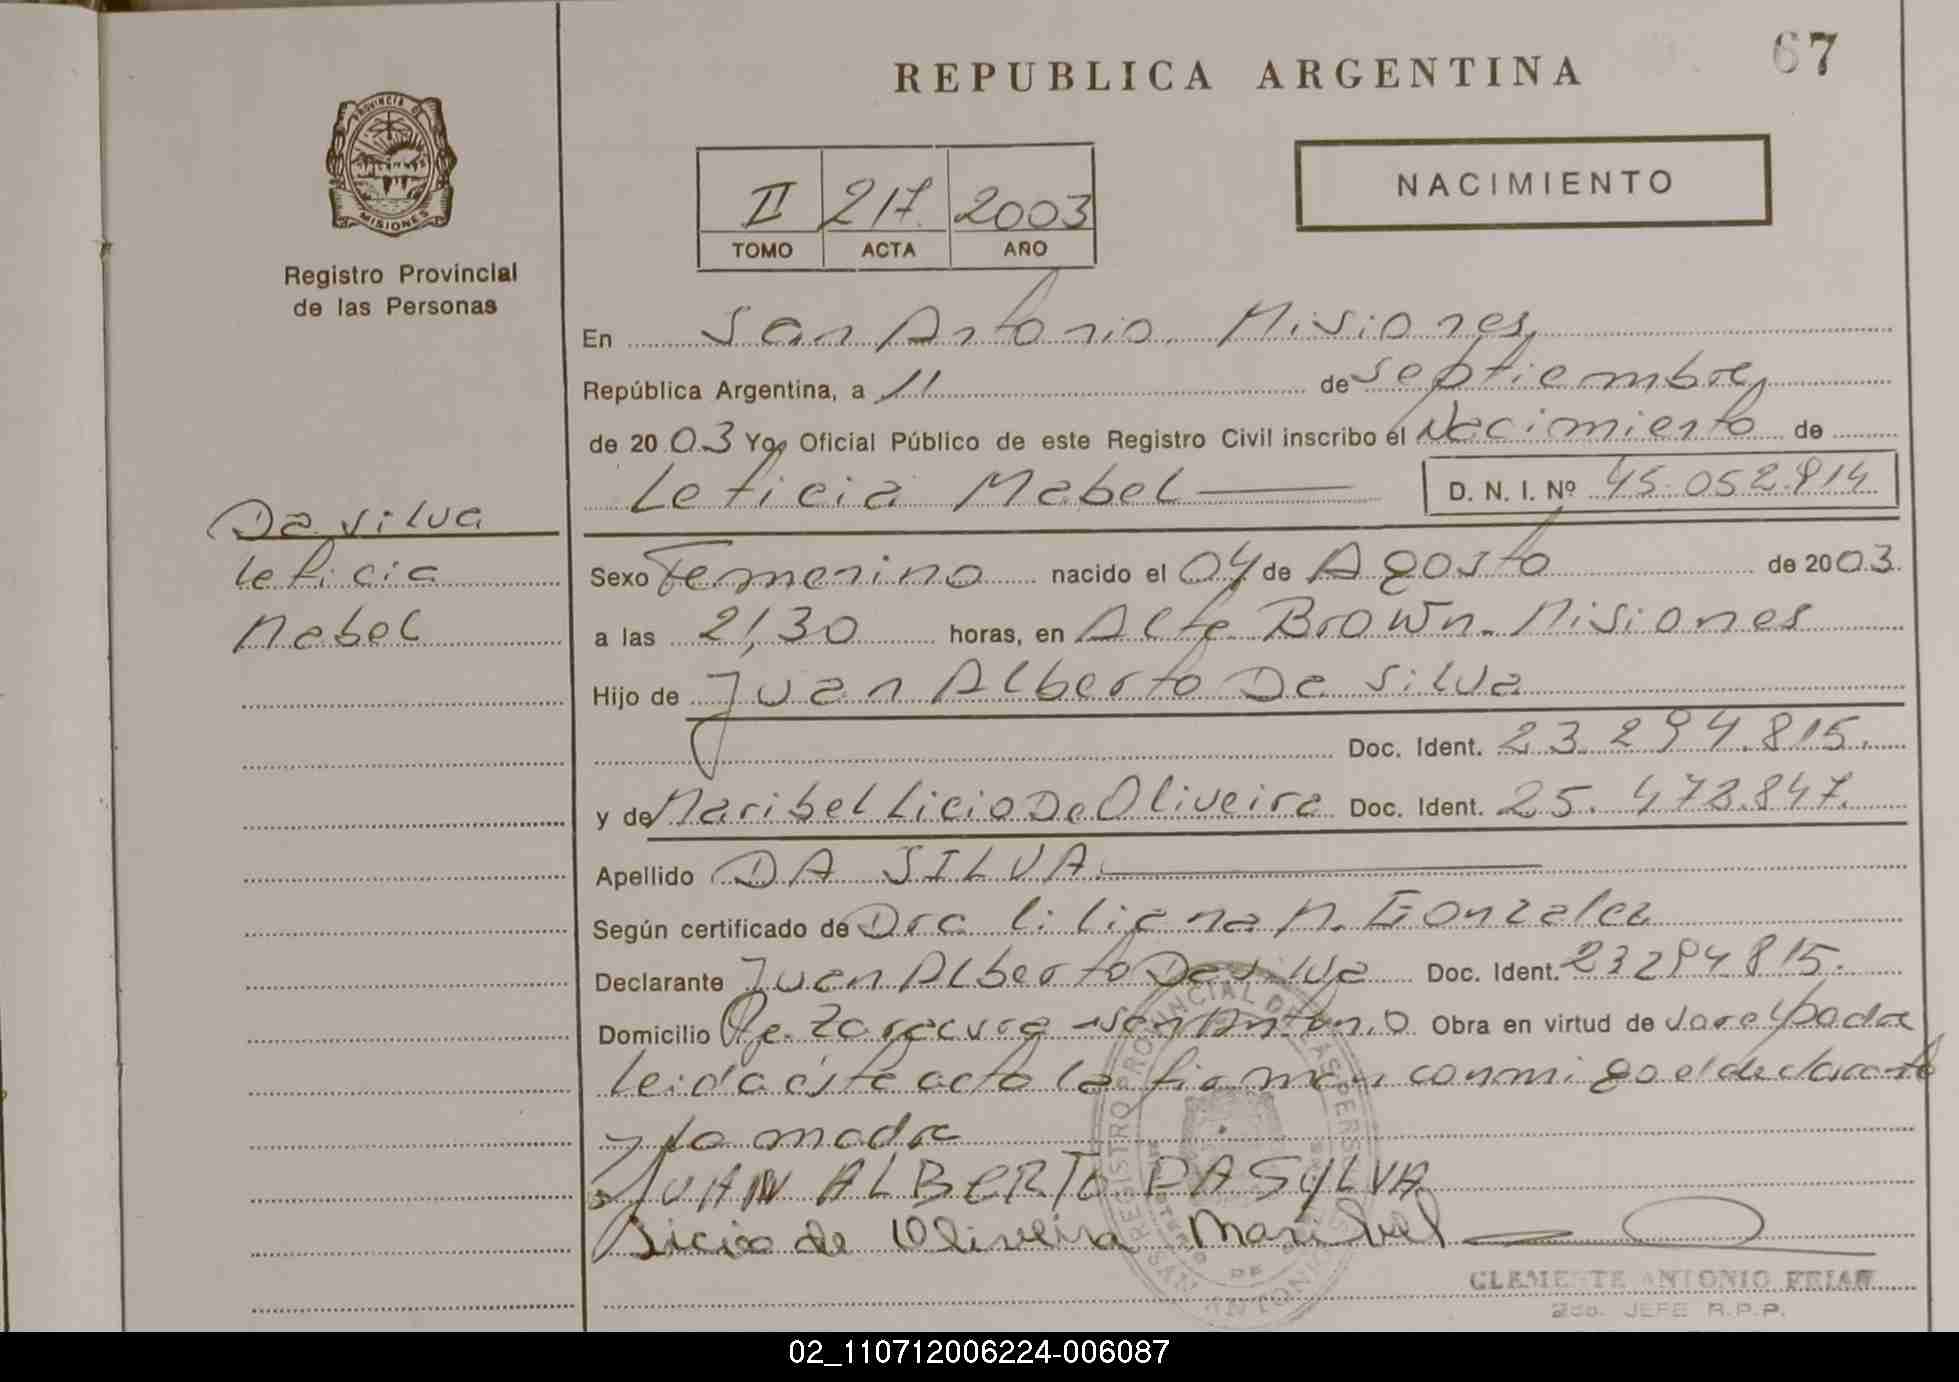 67
REPUBLICA ARGENTINA
NACIMIENTO
II 217. 2003
TOMO ACTA AÑO
PROVINCIA DE
MISIONES
Registro Provincial
de las Personas
En San Antonio. Misiones,
República Argentina, a 11 de septiembre,
de 2003 Yo, Oficial Público de este Registro Civil inscribo el Nacimiento de
Leticia Mabel D. N. I. Nº 45.052.814
Da Silva
Leticia
Mabel
Sexo Femenino nacido el 04 de Agosto de 2003.
a las 21,30 horas, en Alte Brown. Misiones
Hijo de Juan Alberto Da Silva
Doc. Ident. 23.294.815.
y de Maribel Licio De Oliveira Doc. Ident. 25.473.847.
Apellido DA SILVA.
Según certificado de Dra Liliana N. Gonzalez
Declarante Juan Alberto Da Silva Doc. Ident. 23294815.
Domicilio Pje. San Antonio Obra en virtud de ser el padre
Leida este acta la firman conmigo el declarante
y la madre
JUAN ALBERTO DA SYLVA
Licio de Oliveira Maribel
REGISTRO PROVINCIAL DE LAS PERSONAS
CLEMENTE ANTONIO FRIAS
2do. JEFE R.P.P.
02_110712006224-006087